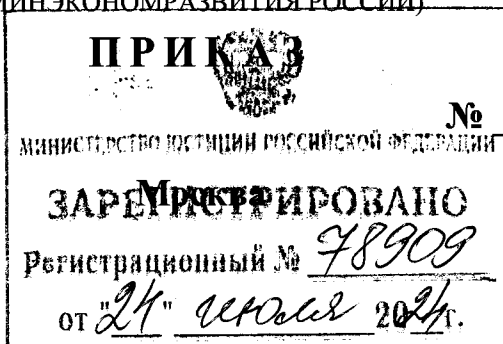 МИНЭКОНОМРАЗВИТИЯ РОССИИ)
ПРИКАЗ
№
МИНИСТЕРСТВО ЮСТИЦИИ РОССИЙСКОЙ ФЕДЕРАЦИИ
Москва
ЗАРЕГИСТРИРОВАНО
Регистрационный № 78909
от "24" июля 2024г.